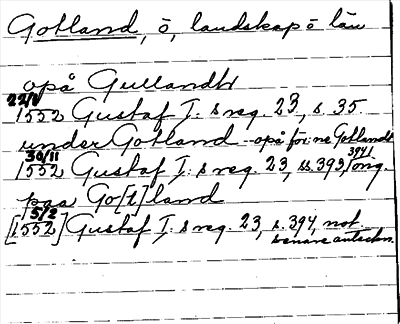 Gotland, ö, landskap o län
opå Gullandh
22/1
1552 Gustaf I: s reg. 23, s. 35.
under Gotland - opå för:ne Gotlandh
30/11
1552 Gustaf I: s reg. 23, ss. 393, 394, Orig.
paa Go[t]land
5/2
[1552] Gustaf I: s reg. 23, s. 394, not.
senare anteckn.